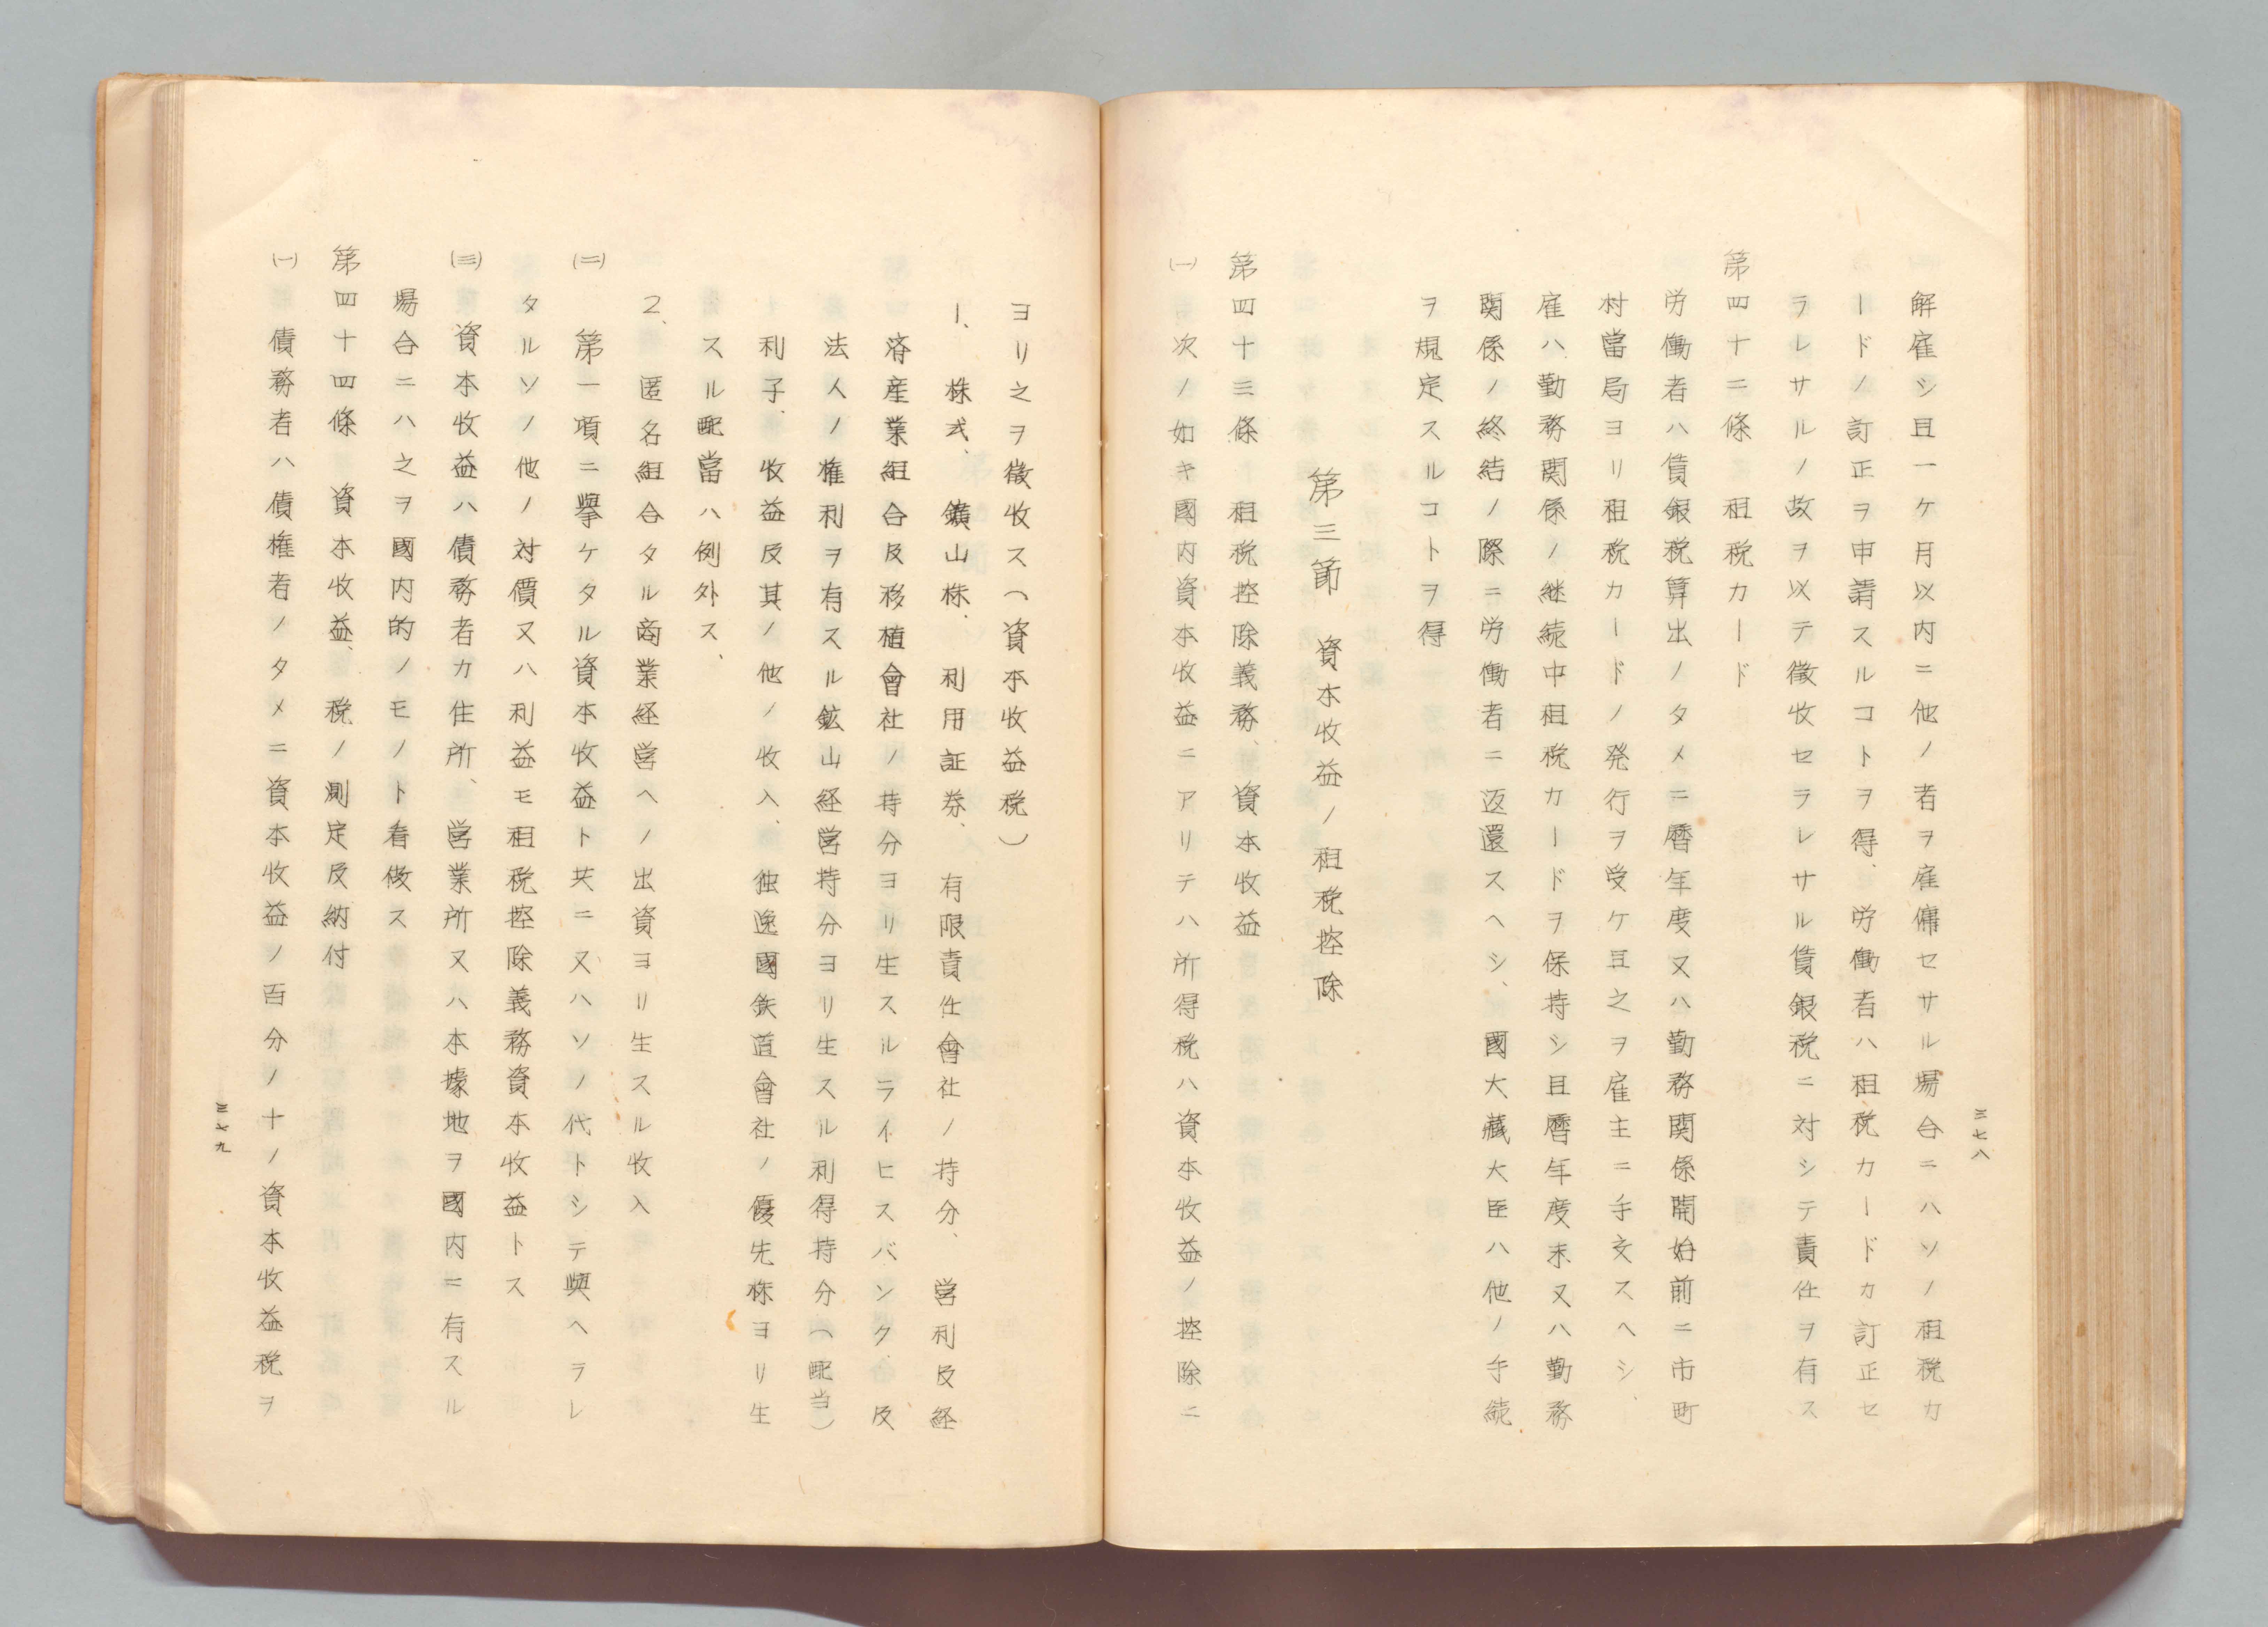 三七八
解雇シ且一ケ月以内ニ他ノ者ヲ雇傭セサル場合ニハソノ租税カ
ードノ訂正ヲ申請スルコトヲ得、労働者ハ租税カードカ訂正セ
ラレサルノ故ヲ以テ徴收セラレサル賃銀税ニ対シテ責任ヲ有ス
第四十二條　租税カード
労働者ハ賃銀税算出ノタメニ暦年度又ハ勤務関係開始前ニ市町
村當局ヨリ租税カードノ発行ヲ受ケ且之ヲ雇主ニ手交スヘシ、
雇ハ勤務関係ノ継続中租税カードヲ保持シ且暦年度末又ハ勤務
関係ノ終結ノ際ニ労働者ニ返還スヘシ、國大藏大臣ハ他ノ手続
ヲ規定スルコトヲ得
第三節　資本收益ノ租税控除
第四十三條　租税控除義務、資本收益
(一)　次ノ如キ國内資本收益ニアリテハ所得税ハ資本收益ノ控除ニ
ヨリ之ヲ徴收ス(資本收益税)
1、株式、鑛山株、利用証券、有限責任會社ノ持分、営利及経
済産業組合及移植會社ノ持分ヨリ生スルライヒスバンク、及
法人ノ権利ヲ有スル鉱山経営持分ヨリ生スル利得持分(配当)
利子、收益及其ノ他ノ收入、独逸國鉄道會社ノ優先株ヨリ生
スル配當ハ例外ス、
2、匿名組合タル商業経営ヘノ出資ヨリ生スル收入
(二)　第一項ニ擧ケタル資本收益ト共ニ又ハソノ代トシテ與ヘラレ
タルソノ他ノ対價又ハ利益モ租税控除義務資本收益トス
(三)　資本收益ハ債務者カ住所、営業所又ハ本據地ヲ國内ニ有スル
場合ニハ之ヲ國内的ノモノト看做ス
第四十四條　資本收益、税ノ測定及納付
(一)　債務者ハ債権者ノタメニ資本收益ノ百分ノ十ノ資本收益税ヲ
三七九